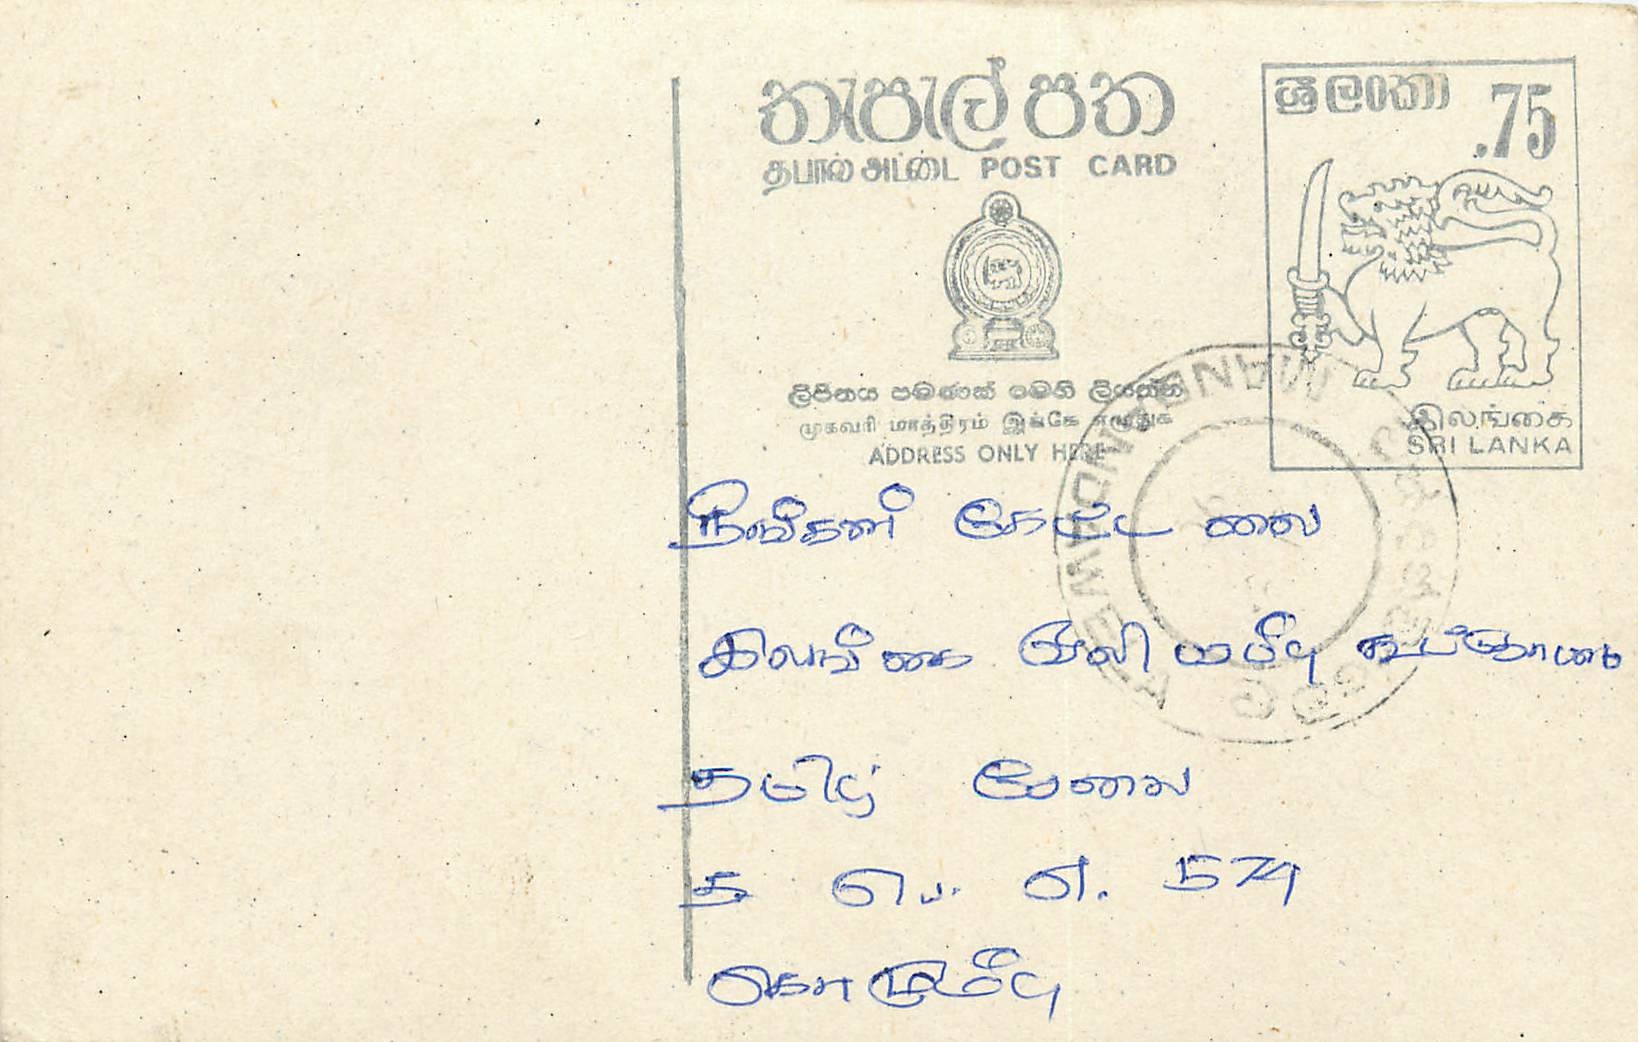 තැපැල් පත
தபால் அட்டை POST CARD
ශ්‍රී ලංකා .75
ලිපිනය පමණක් මෙහි ලියන්න
முகவரி மாத்திரம் இங்கே எழுதுக
ADDRESS ONLY HERE
இலங்கை
SRI LANKA
MANDAWELA
நீங்கள் கேட்டவை
இலங்கை ஒலிபரப்பு கூட்
தமிழ் சேவை
த. பெ. எ. 574
கொழும்பு